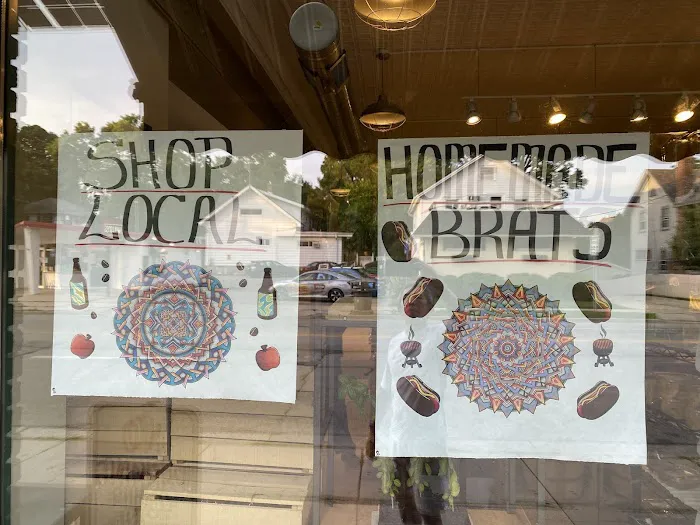 SHOP
LOCAL
HOMEMADE
BRATS